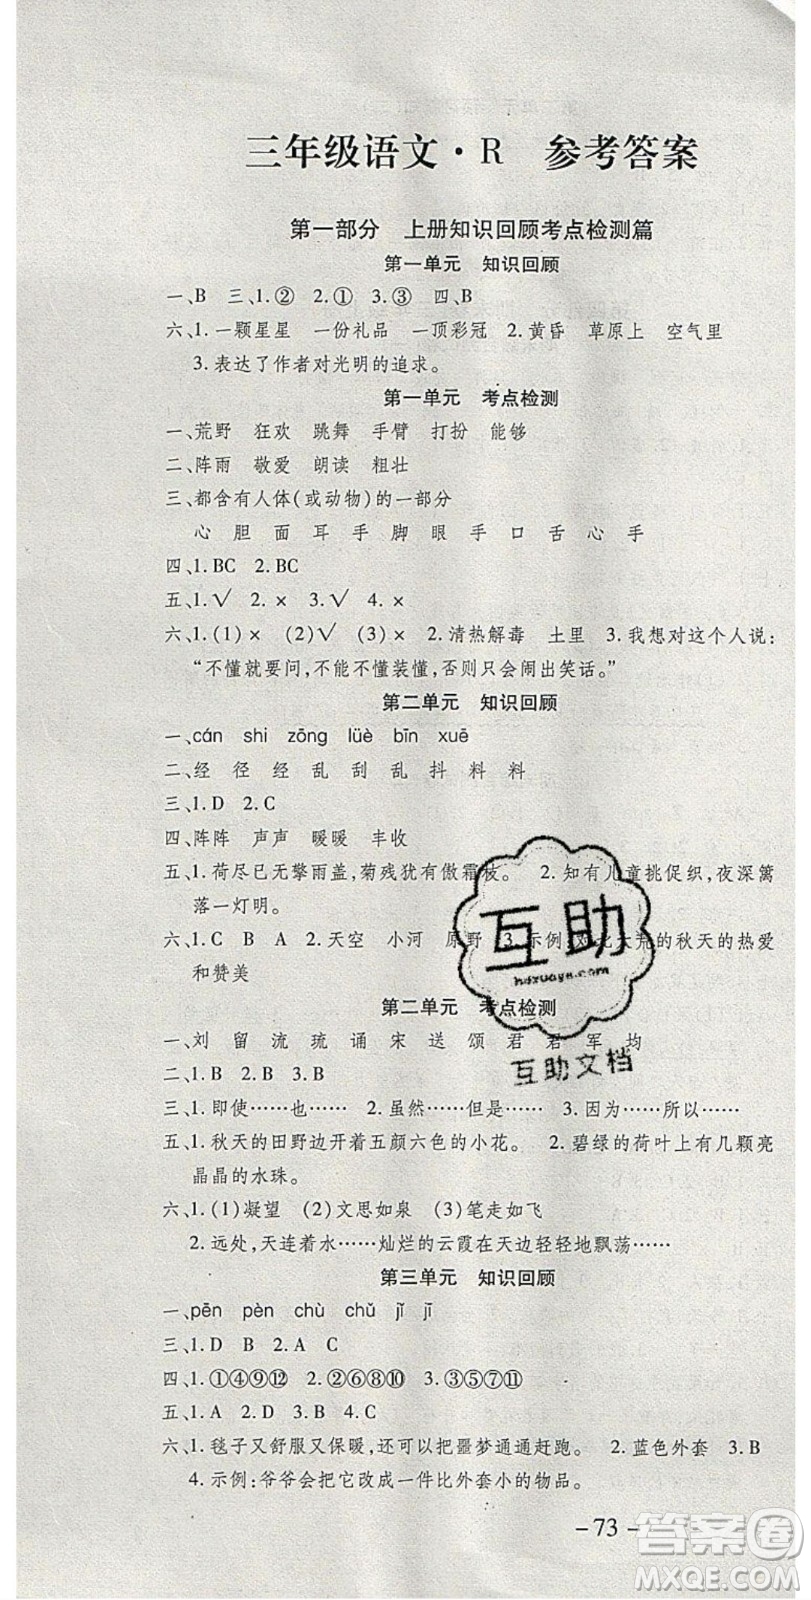 三年级语文·R　参考答案
第一部分　上册知识回顾考点检测篇
第一单元　知识回顾
一、B　三、1.②　2.①　3.③　四、B
六、1.一颗星星　一份礼品　一顶彩冠　2.黄昏　草原上　空气里
3.表达了作者对光明的追求。
第一单元　考点检测
一、荒野　狂欢　跳舞　手臂　打扮　能够
二、阵雨　敬爱　朗读　粗壮
三、都含有人体(或动物)的一部分
心　胆　面　耳　手　脚　眼　手　口　舌　心　手
四、1.BC　2.BC
五、1.√　2.×　3.√　4.×
六、1.(1)×　(2)√　(3)×　2.清热解毒　土里　3.我想对这个人说:
“不懂就要问,不能不懂装懂,否则只会闹出笑话。”
第二单元　知识回顾
一、cán　shi　zōng　lüè　bīn　xuē
二、经　径　经　乱　刮　乱　抖　料　料
三、1.D　2.C
四、阵阵　声声　暖暖　丰收
五、1.荷尽已无擎雨盖,菊残犹有傲霜枝。　2.知有儿童挑促织,夜深篱
落一灯明。
六、1.C　B　A　2.天空　小河　原野　3.示例:对北大荒的秋天的热爱
和赞美
第二单元　考点检测
一、刘　留　流　琉　诵　宋　送　颂　君　君　军　均
二、1.B　2.B　3.B
三、1.即使……也……　2.虽然……但是……　3.因为……所以……
五、1.秋天的田野边开着五颜六色的小花。　2.碧绿的荷叶上有几颗亮
晶晶的水珠。
六、1.(1)凝望　(2)文思如泉　(3)笔走如飞
2.远处,天连着水……灿烂的云霞在天边轻轻地飘荡……
第三单元　知识回顾
一、pēn　pèn　chù　chǔ　jǐ　jī
三、1.D　B　2.A　C
四、1.①④⑨⑫　2.②⑥⑧⑩　3.③⑤⑦⑪
五、1.A　2.D　3.C　4.B
六、1.毯子又舒服又保暖,还可以把噩梦通通赶跑。　2.蓝色外套　3.B
4.示例:爷爷会把它改成一件比外套小的物品。
－73－
互助
hdzuoye.com
互助文档
答案卷
MXQE.COM